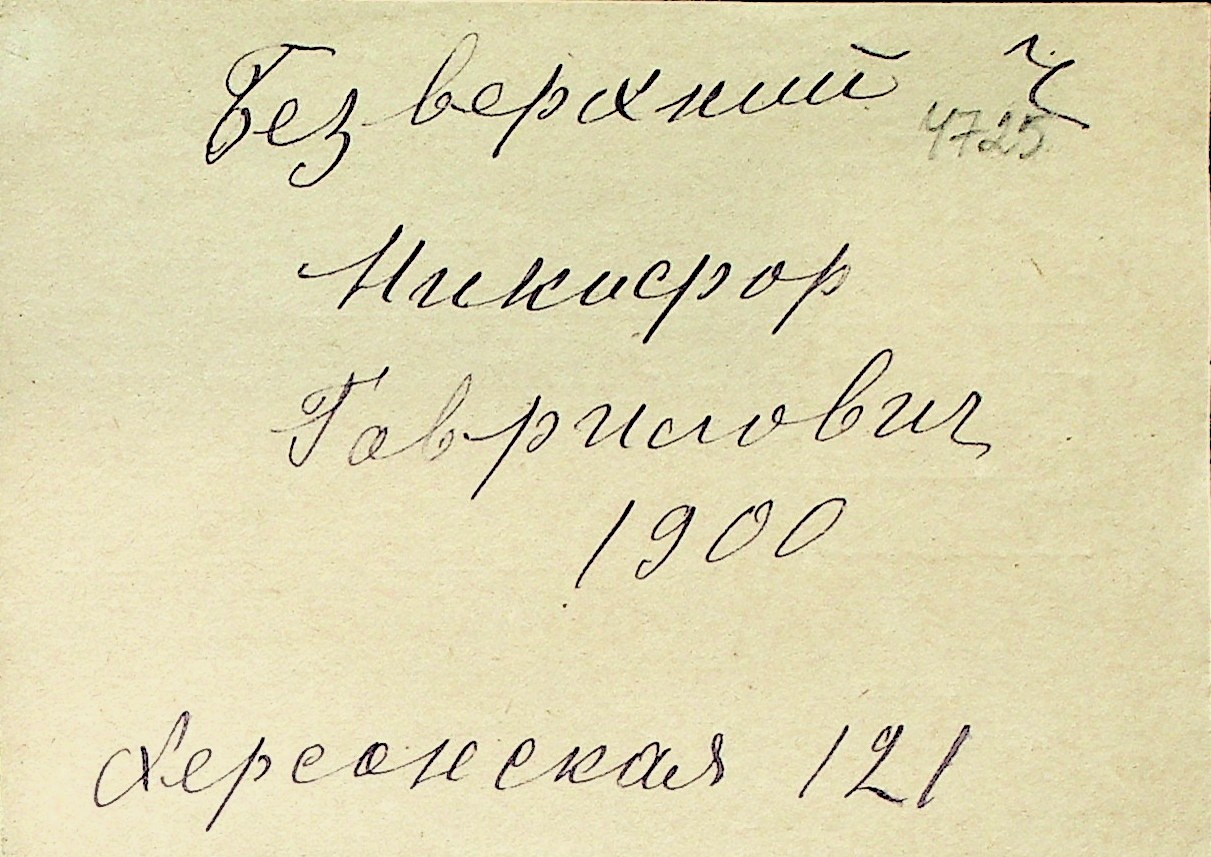 Безверхний Ч
4725
Никифор
Гаврилович
1900
Херсонская 121